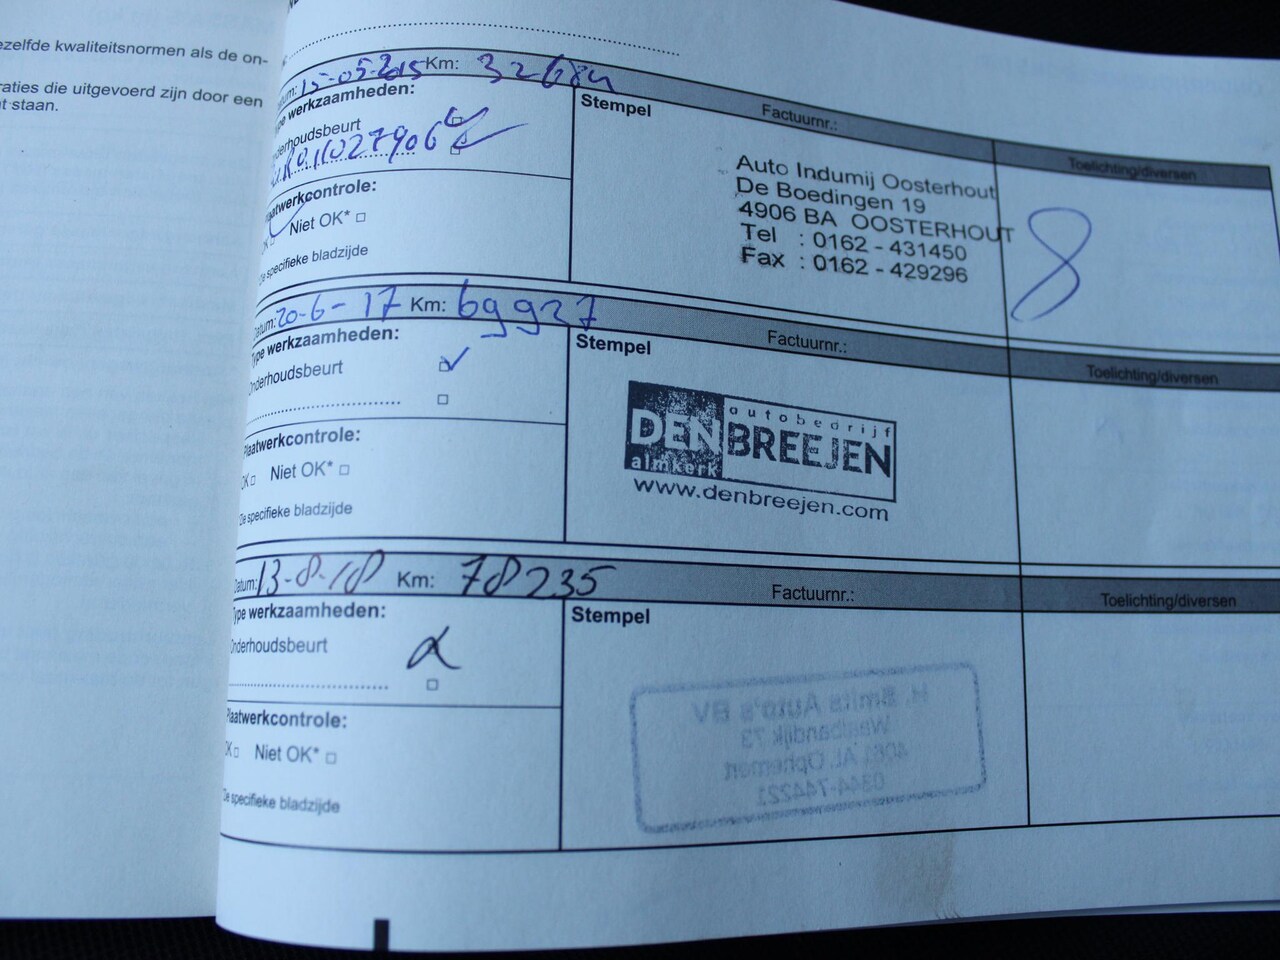 ezelfde kwaliteitsnormen als de on-
raties die uitgevoerd zijn door een
staan.
15-05-2015 Km: 32684
Type werkzaamheden:
Stempel
Factuurnr.:
Toelichting/diversen
Onderhoudsbeurt
11027906
Plaatwerkcontrole:
OK Niet OK*
De specifieke bladzijde
Auto Indumij Oosterhout
De Boedingen 19
4906 BA OOSTERHOUT
Tel : 0162 - 431450
Fax : 0162 - 429296
8
Datum: 20-6-17 Km: 69927
Type werkzaamheden:
Stempel
Factuurnr.:
Toelichting/diversen
Onderhoudsbeurt
Plaatwerkcontrole:
OK Niet OK*
De specifieke bladzijde
autobedrijf
DEN BREEJEN
almkerk
www.denbreejen.com
Datum: 13-8-18 Km: 78235
Type werkzaamheden:
Stempel
Factuurnr.:
Toelichting/diversen
Onderhoudsbeurt
Plaatwerkcontrole:
OK Niet OK*
De specifieke bladzijde
H. Smits Auto's BV
Waalbandijk 73
4061 AL Ophemert
0344-744221